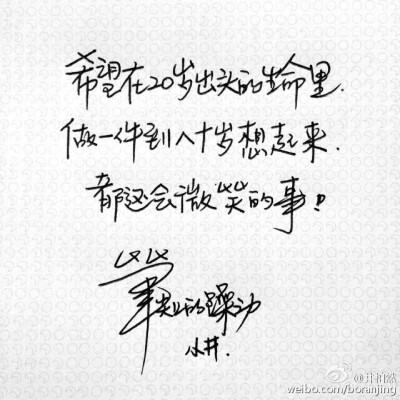 希望在20岁出头的生命里.
做一件到八十岁想起来.
都还会微笑的事!
毕业的躁动
小井.
@井柏然
weibo.com/boranjing